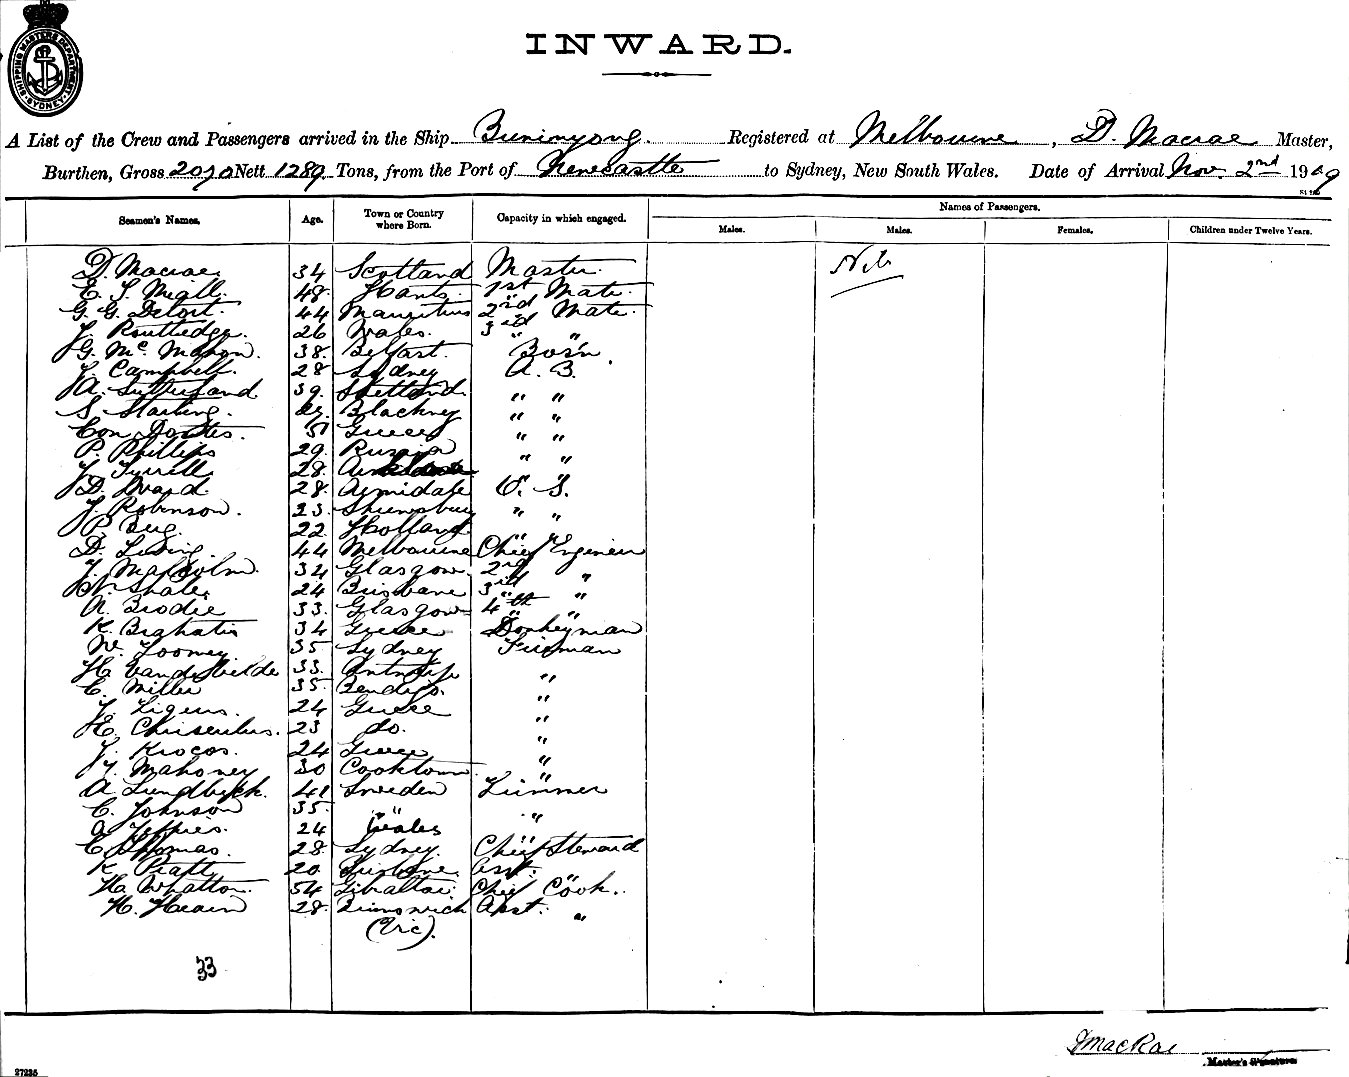 SHIPPING MASTERS DEPARTMENT SYDNEY
INWARD.
A List of the Crew and Passengers arrived in the Ship Buninyong Registered at Melbourne, D. Macrae Master,
Burthen, Gross 2070 Nett 1289 Tons, from the Port of Newcastle to Sydney, New South Wales. Date of Arrival Nov. 2nd 1909
Seamen's Names. Age. Town or Country where Born. Capacity in which engaged. Names of Passengers.
Males. Males. Females. Children under Twelve Years.
D. Macrae 34 Scotland Master Nil
E. J. Miall 48 Hants 1st Mate
G. G. Detoit 44 Mauritius 2nd Mate
J. Routledge 26 Wales 3rd "
G. McMahon 38 Belfast Bosn
J. Campbell 28 Sydney A. B.
A. Sutherland 39 Shetland " "
S. Starling 29 Blackney " "
Con 51 Greece " "
P. Phillips 29 Russia " "
J. Tyrrell 28
D. Ward 28 Armidale O. S.
J. Robinson 23 Shrewsbury " "
P. 22 Holland
D. 44 Melbourne Chief Engineer
J. Malcolm 34 Glasgow 2nd "
24 Brisbane 3rd "
A. Brodie 33 Glasgow 4th "
K. 34 Greece Donkeyman
W. Toomey 35 Sydney Fireman
H. Vandevelde 33 Antwerp "
C. Miller 35 Bendigo "
J. 24 Greece "
H. 23 do. "
J. Krocos 24 Greece "
J. Mahoney 30 Cooktown "
A. Lundbyck 41 Sweden Trimmer
C. Johnson 35 " "
A. Jeffries 24 Wales
C. Thomas 28 Sydney Chief Steward
K. Pratt 20 Brisbane Asst. "
H. Whatton 54 Gibraltar Chief Cook
H. 28 Brunswick Asst. "
(Vic).
33
D MacRae
Master's Signature
27235